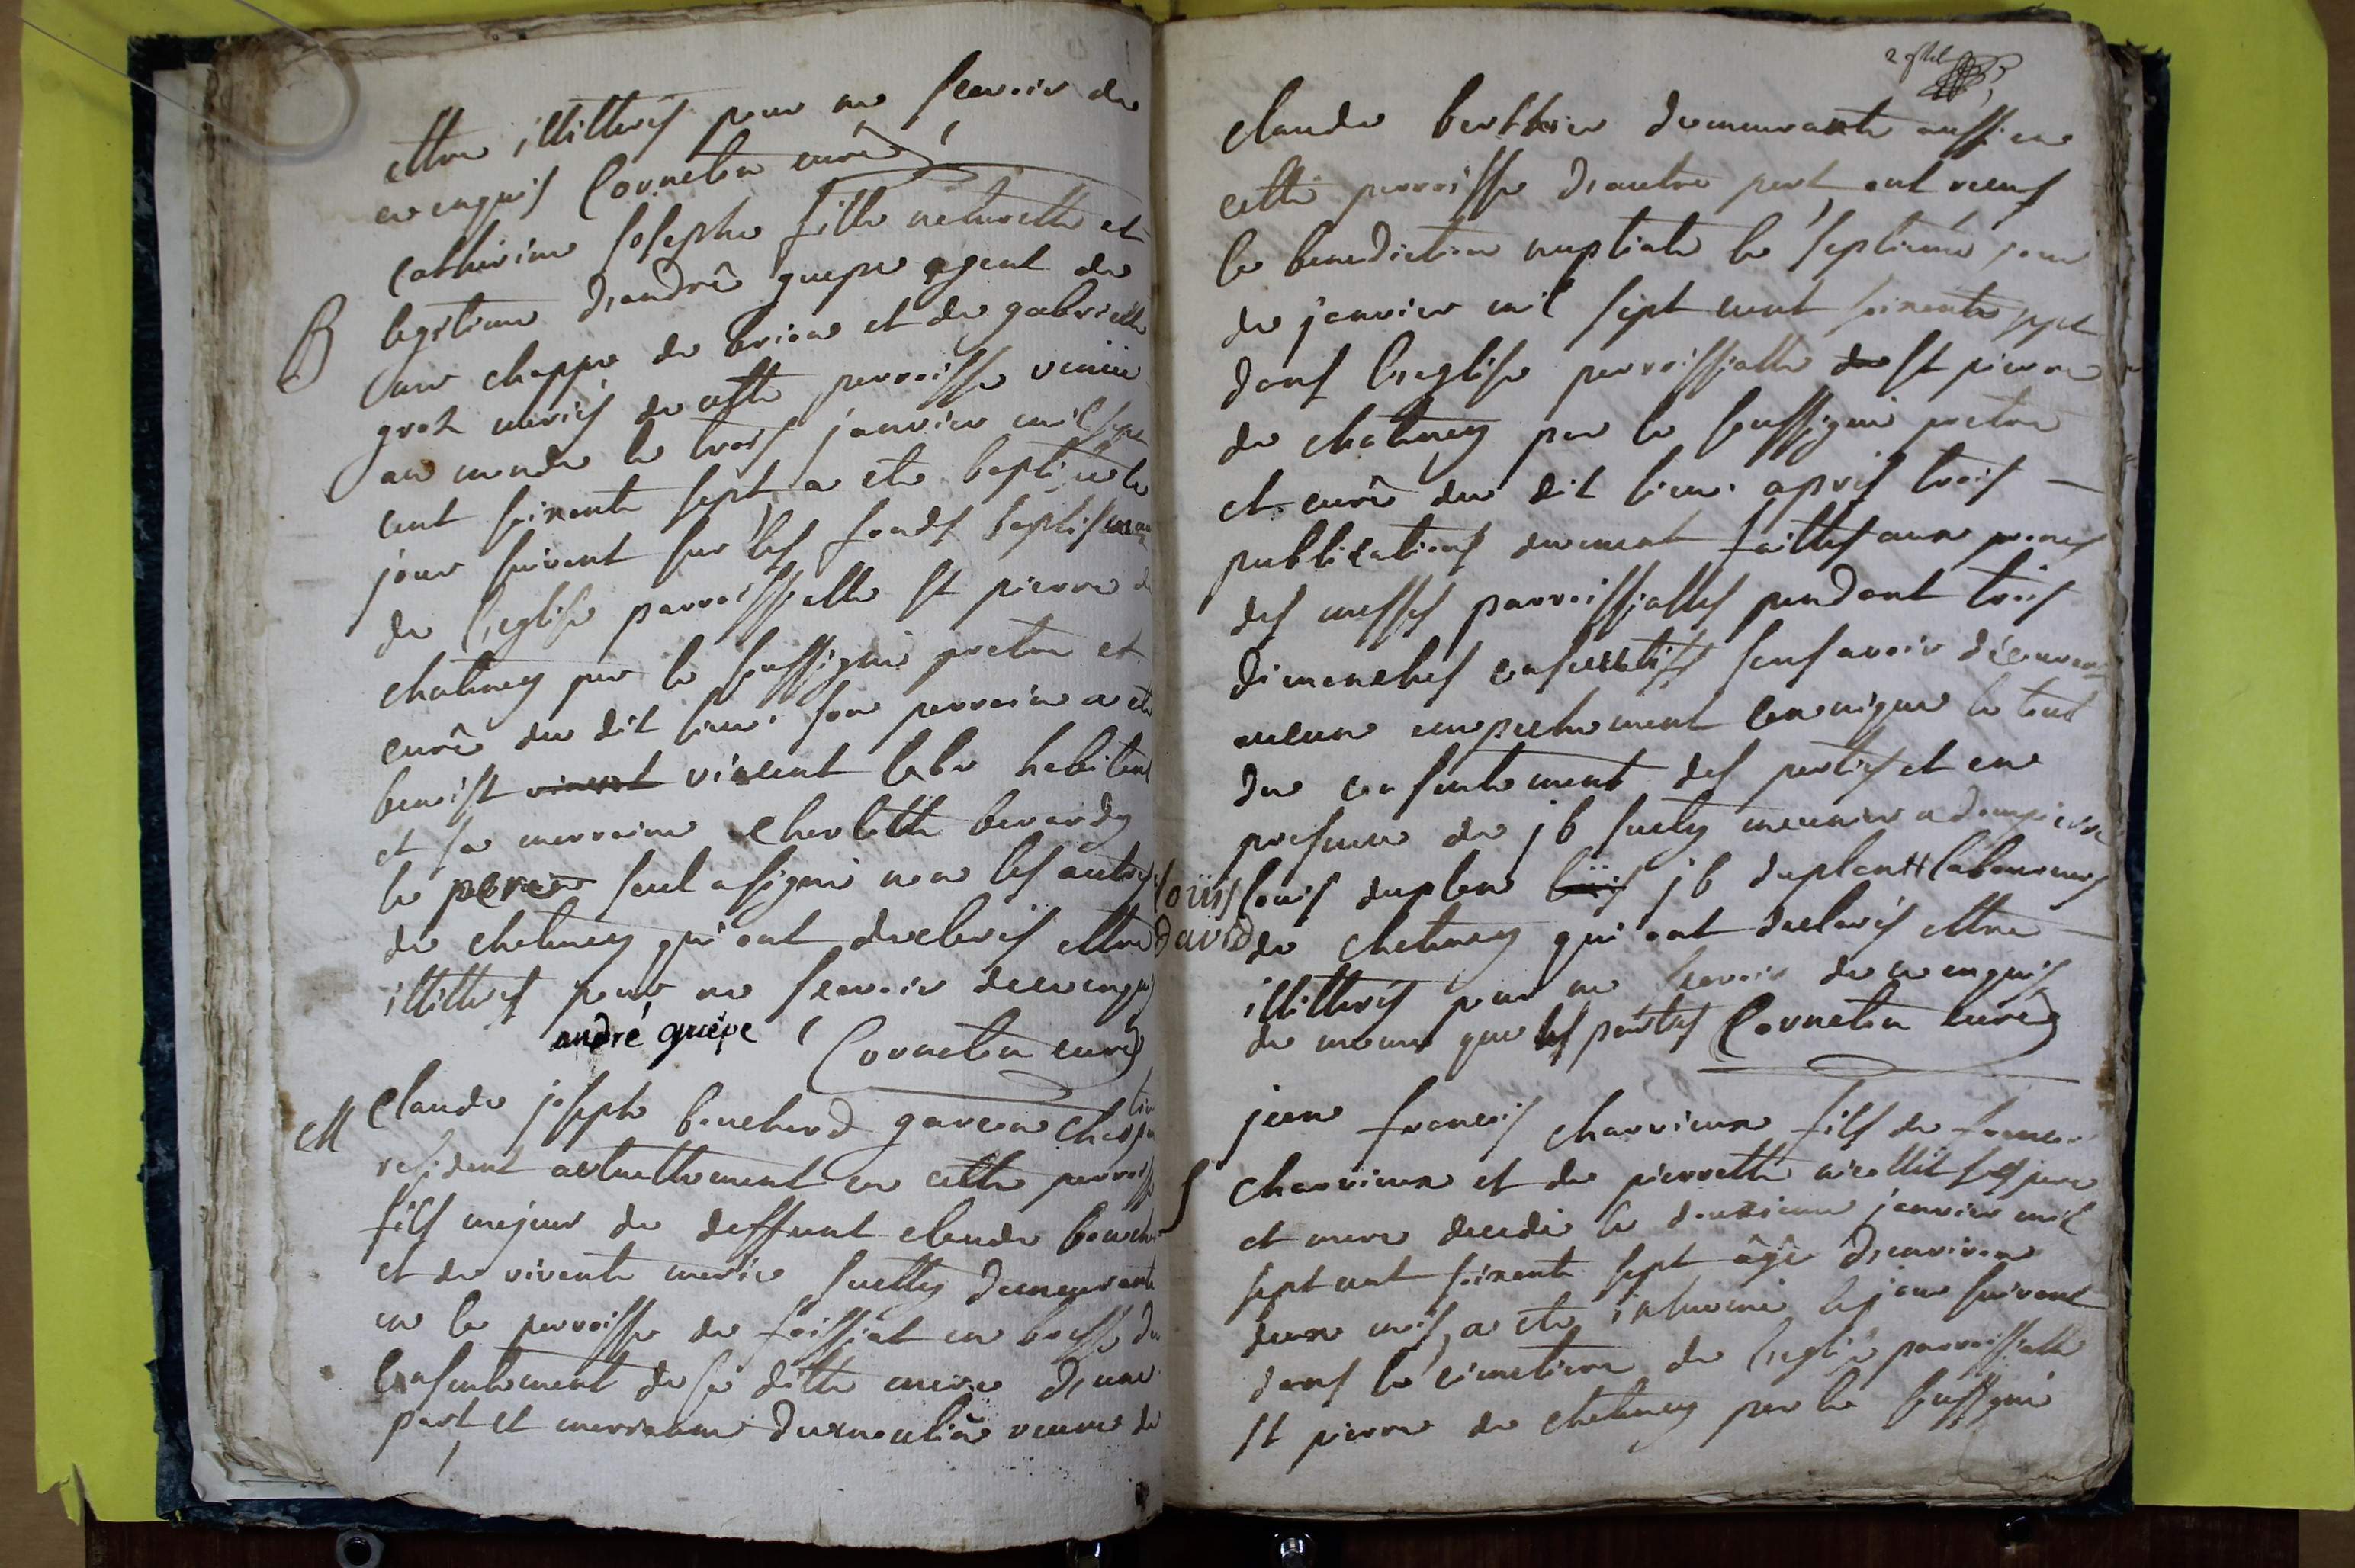 ettre illitterés pour ne scavoir de
ce enquis Corneton curé
catherine josephe fille naturelle et
B legitime d'andrê guepe agent de
sur chappe de brion et de gabrielle
groz mariés de cette parroisse venüe
au monde le trois janvier mil sept
cent soixante sept, a eté baptizée le
jour suivant sur les fonds baptismaux
de l'eglise parroissialle st pierre de
chatenay par le soussigné pretre et
curê du dit lieu. son parrain a eté
benoist vincent vincent lebe habitant
et sa marraine charlotte berardy
le perein seul a signé non les autres
de chatenay qui ont declarés ettre
illittrés pour ne scavoir de ce enquis
andré guêpe Corneton curé
M Claude joseph bouchard garcon
resident actuellement en cette parroisse
fils majeur de deffunt claude bouchard
et de vivante marie suetty demeurante
en la parroisse de foissiat en bresse du
Consentement de sa ditte mere d'une
part, et marianne dusmoulin veuve de
2 fstel
Claude berthier demeurante aussi en
cette parroisse d'autre part, ont receus
la benediction nuptiale le septieme jour
de janvier mil sept cent soixante sept
dans l'eglise parroissialle de st pierre
de chatenay par le soussigné pretre
et curê du dit lieu. aprés trois
publications duement faittes aux prones
des messes parroissialles pendant trois
dimanches consecutifs sans avoir découvert
aucun empechement canonique le tout
du consentement des parties et en
presence de jb suety meunier a dompierre
louis david
louis duplan louis jb duplan laboureurs
de chatenay qui ont declarés ettre
illitterés pour ne scavoir de ce enquis
de meme que les parties Corneton curé
jean francois charvieux fils de francois
S charvieux et de pierrette nicollet ses pere
et mere decedé le deuxieme janvier mil
sept cent soixante sept âgé d'environ
deux mois, a eté inhumé le jour suivant
dans le cimetiere de l'eglise parroissialle
st pierre de chatenay par le soussigné